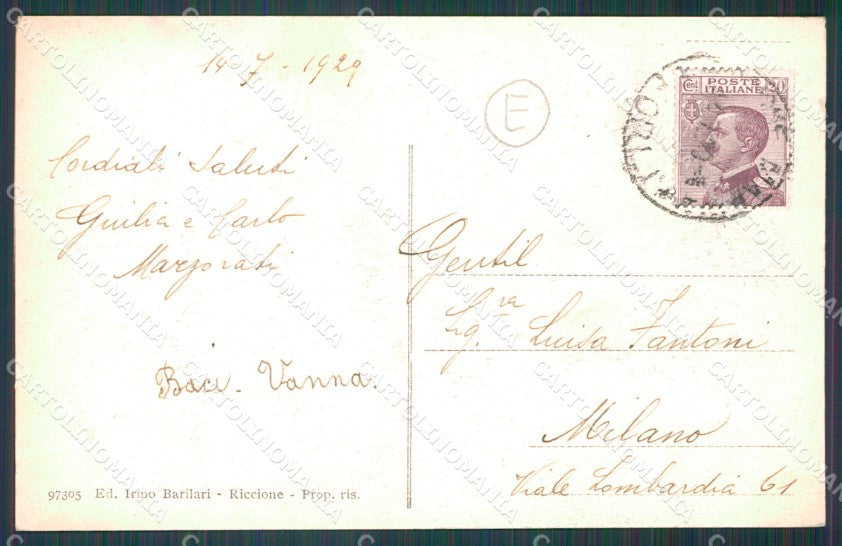 14 7 - 1929
E
Cordiali Saluti
Giulia e Carlo
Marzorati
Baci - Vanna.
97305 Ed. Irmo Barilari - Riccione - Prop. ris.
POSTE
ITALIANE
Cent 20
FORLI
Gentil
Sg.ra Luisa Fantoni
Milano
Viale Lombardia 61
CARTOLINOMANIA